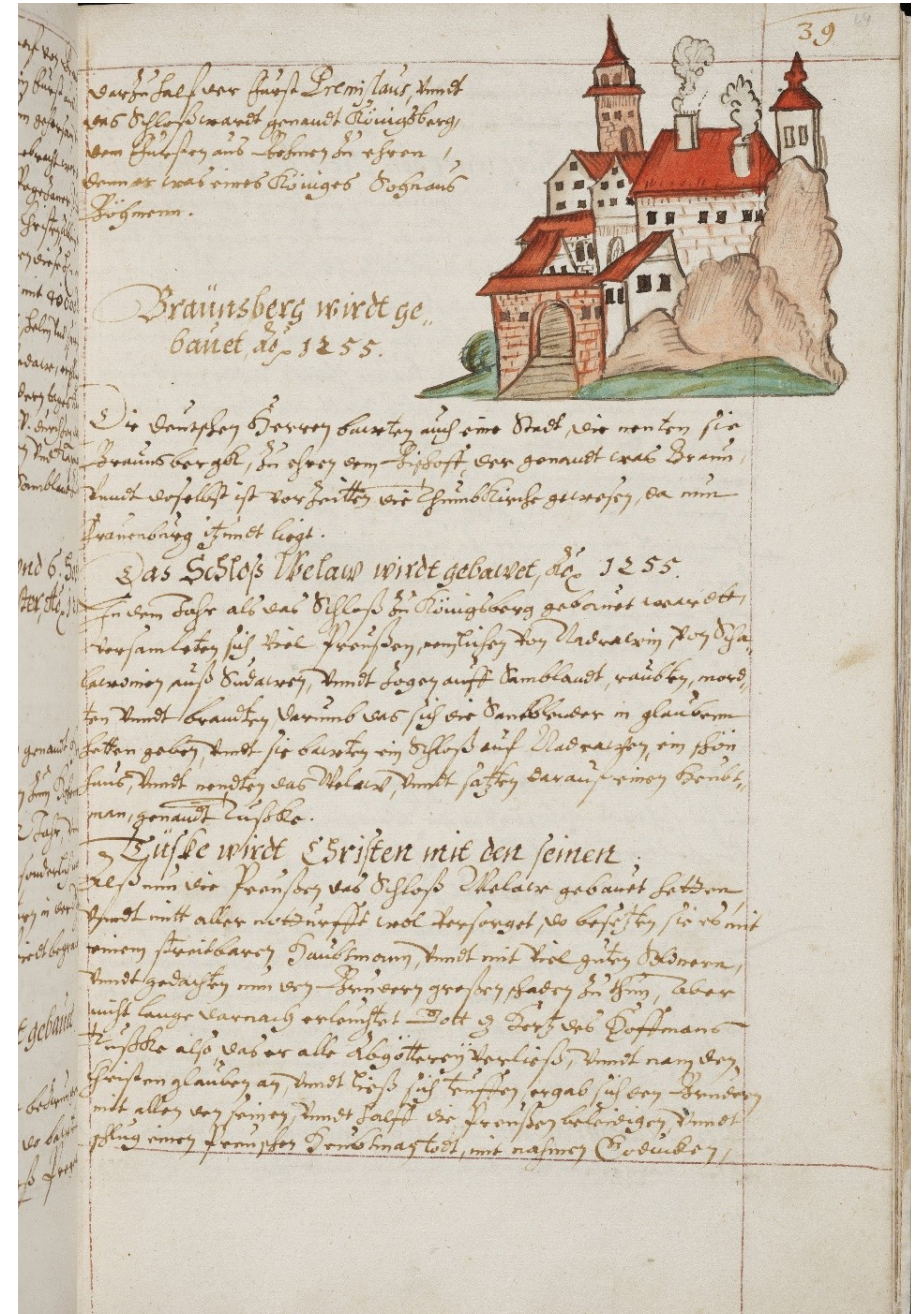 39
darzu halff der Furst Premislaus, vnndt
das Schloß wardt genandt Königsberg,
dem Fursten aus Behmen zu ehren,
denn er was eines Königes Sohn aus
Böhmenn.
Braünsberg wirdt ge„
bauet, Aō 1255.
Die deutschen Herren bawten auch eine Stadt, die nenten sie
Braunsbergk, zu ehren dem Bischoff, der genandt was Braun,
vnndt doselbst ist vor Zeitten die Thumbkirche gewesen, da nun
Frauenburg itzundt liegt.
Das Schloß Welaw wirdt gebawet, Aō 1255.
In dem Jahr als das Schloß zu Königsberg gebauet wardt,
versamleten sich viel Preußen, nemlichen von Nadrawin, von Scha„
lawonien, auß Sudawen, vnndt zogen auff Samblandt, raubten, mord„
ten vnndt brandten darumb das sich die Samblender in glaubenn
hetten geben, vnndt sie bawten ein Schloß auf Nadrawen, ein schön
haus, vnndt nendten das Welaw, vnndt satzten darauf einen Heubt„
man, genandt Tußke.
Tüske wirdt Christen mit den seinen.
Alß nun die Preußen das Schloß Welaw gebauet hetten,
vnndt mitt aller notturfft wol versorget, do besetzten sie es mit
einem streitbaren Haubtmann, vnndt mit viel guten
vnndt gedachten nun den Brudern großen schaden zu thun, Aber
nicht lange darnach erleuchtet Gott das Hertz des Hoffmans
Tußke also das er alle Abgötterey verließ, vnndt nam den
Christen glauben an, vnndt ließ sich teuffen, ergab sich den Brudern
mit allen den seinen, vnndt halff die Preußen beleidigen, vnndt
schlug einen Preuschen Heubtman todt, mit nahmen Goducken,